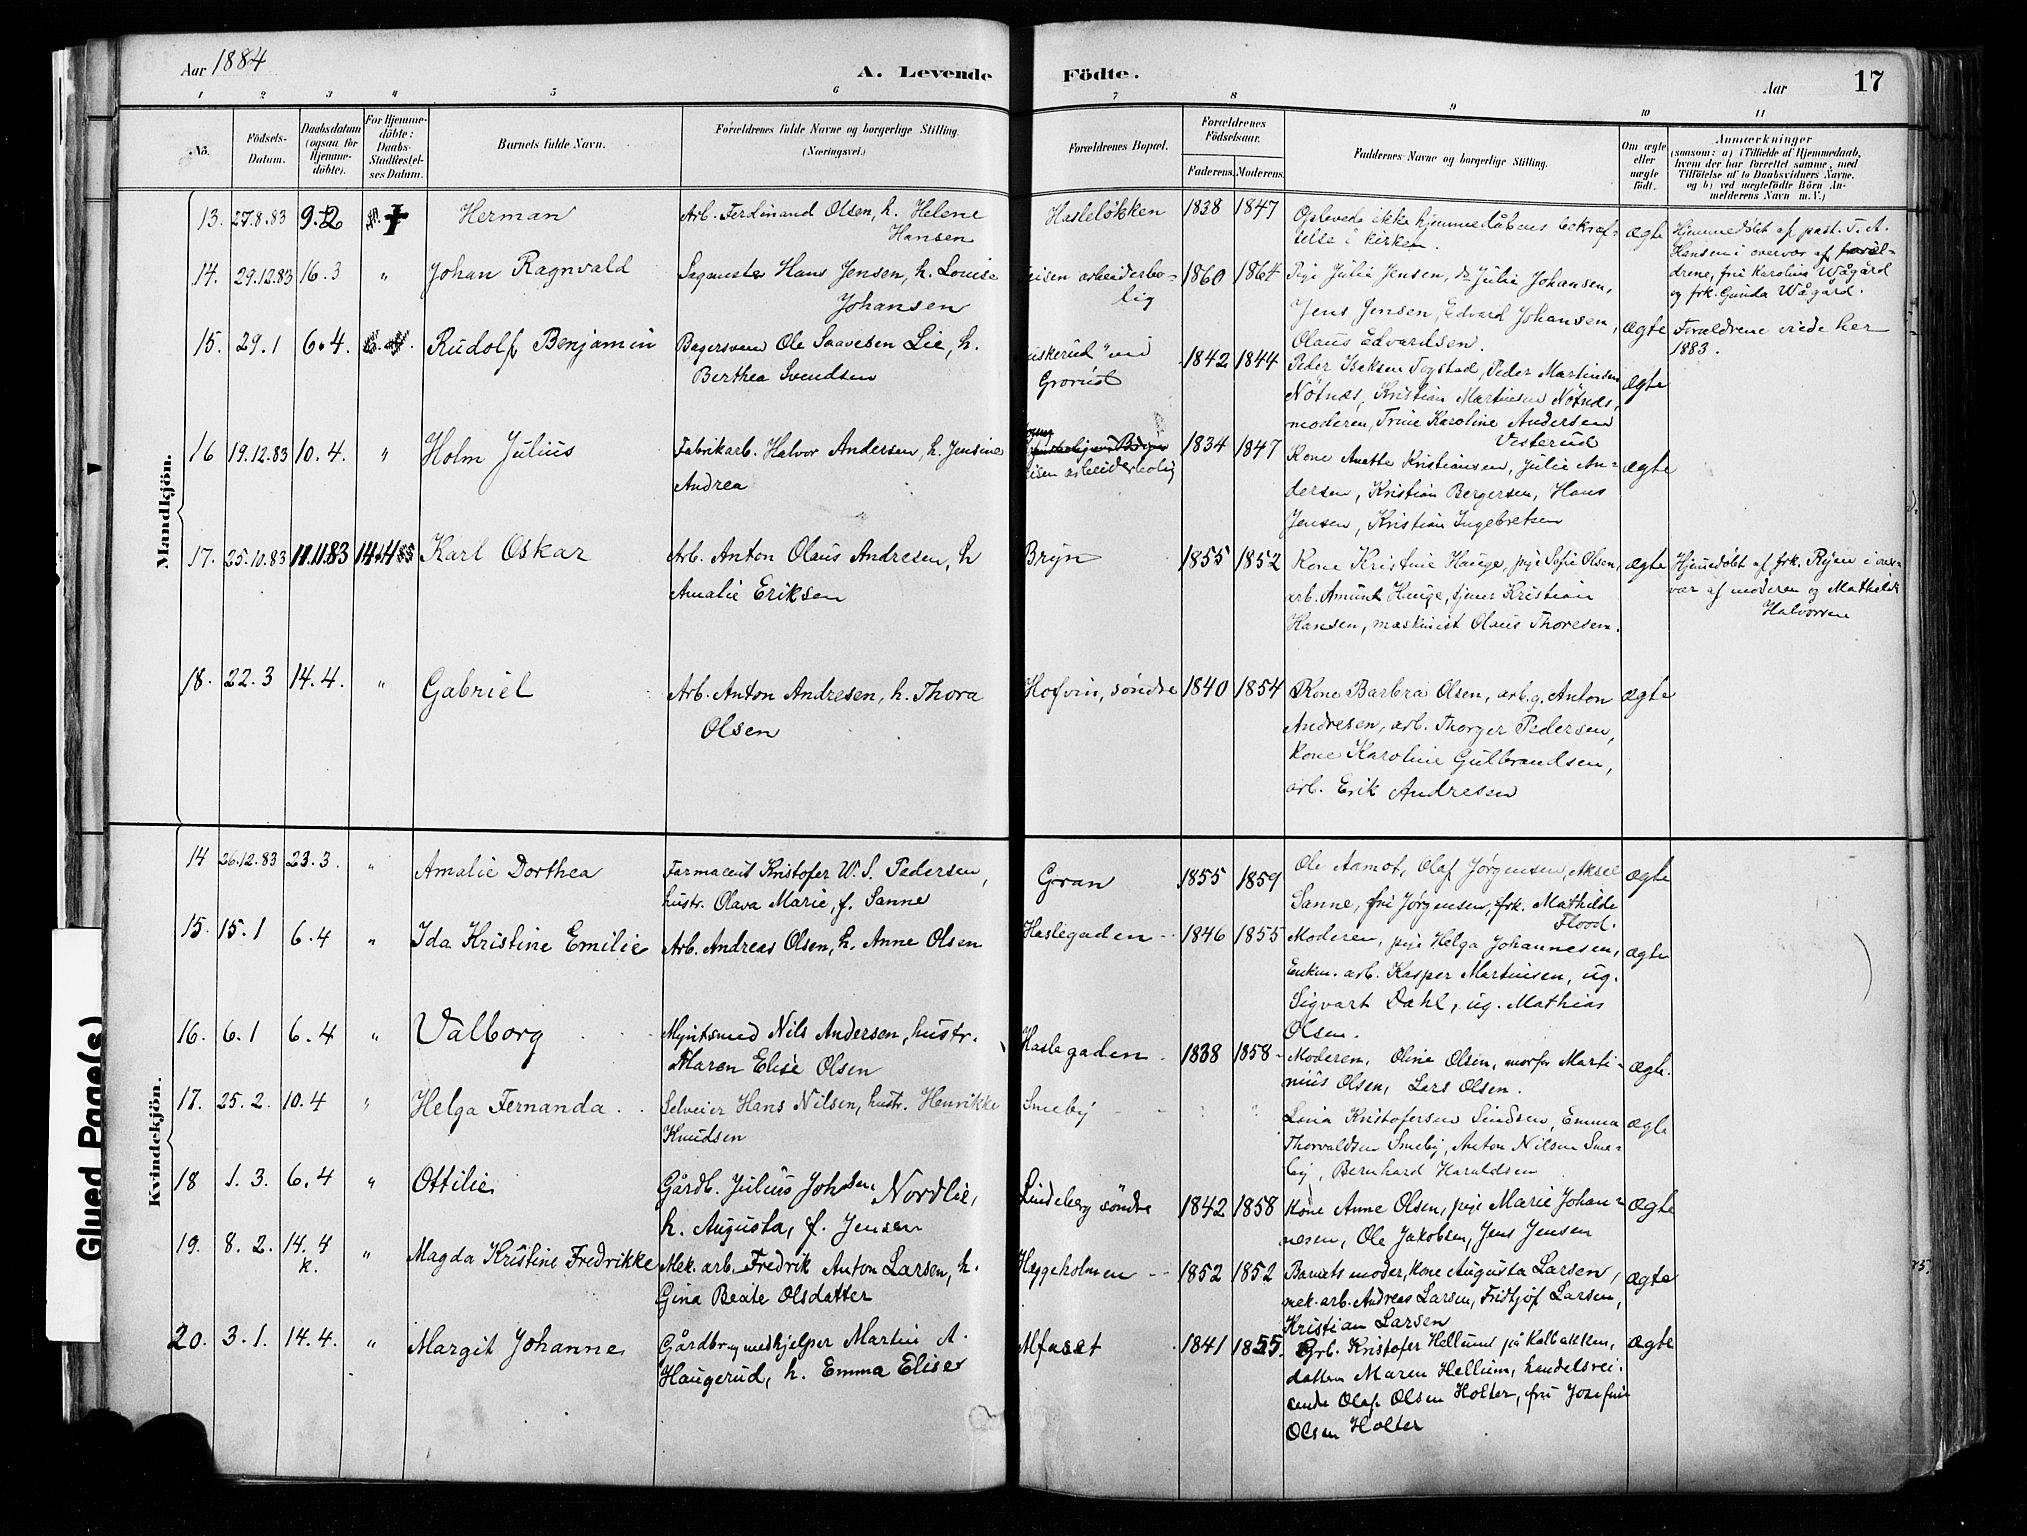 Aar 1884
A. Levende Födte.
Aar
17
1 2 3 4 5 6 7 8 9 10 11
No.
Födsels-Datum.
Daabsdatum (ogsaa for Hjemmedöbte).
For Hjemmedöbte: Daabs-Stadfæstelses Datum.
Barnets fulde Navn.
Forældrenes fulde Navne og borgerlige Stilling. (Næringsvei.)
Forældrenes Bopæl.
Forældrenes Födselsaar.
Faderens. Moderens.
Faddernes Navne og borgerlige Stilling.
Om ægte eller uægte födt.
Anmærkninger
(saasom: a) i Tilfælde af Hjemmedaab, hvem der har forrettet samme, med Tilföielse af to Daabsvidners Navne, og b) ved uægtefödte Börn Anmelderens Navn m. V.)
Mandkjön.
13. 27.8.83 9.2 † Herman Arb. Ferdinand Olsen, h. Helene Hasleløkken 1838 1847 Oplevede ikke hjemmedåbens bekræf- ægte Hjemmedøbt af past. T. A.
Hansen telse i kirken. Hansen i overvær af foræl-
14. 29.12.83 16.3 " Johan Ragnvald Sagmester Hans Jensen, h. Louise arbeiderbo- 1860 1864 Pige Julie Jensen, do Julie Johansen, drene, fru Karoline Wågård
Johansen lig Jens Jensen, Edvard Johansen, ægte og frk. Gunda Wågård.
15. 29.1 6.4. Rudolf Benjamin Bagersvend Ole Saavesen Lie, h. ved 1842 1844 Olaus Edvardsen. Forældrene viede her
Berthea Svendsen Grorud Peder Isaksen Fogstad, Peder Martinsen ægte 1883.
Nøtnæs, Kristian Martinsen Nøtnæs,
moderen, Trine Karoline Andersen
Vesterud
16 19.12.83 10.4. " Holm Julius Fabrikarb. Halvor Andersen, h. Jensine arbeiderbolig 1834 1847 Kone Anette Kristiansen, Julie An- ægte
Andrea dersen, Kristian Bergersen, Hans
Jensen, Kristian Ingebretsen
17. 25.10.83 11.11.83 14.4 Karl Oskar Arb. Anton Olaus Andresen, h Bryn 1855 1852 Kone Kristine Hauge, pige Sofie Olsen, ægte Hjemmedøbt af frk. Ryen i over-
Amalie Eriksen arb. Amunt Hauge, tjener Kristian vær af moderen og Mathilde
Hansen, maskinist Olaus Thoresen. Halvorsen
18. 22.3 14.4. " Gabriel Arb. Anton Andresen, h. Thora Hofvin, søndre 1840 1854 Kone Barbra Olsen, arb. g. Anton ægte
Olsen Andresen, arb. Thorger Pedersen,
kone Karoline Gulbrandsen,
arb. Erik Andresen
Kvindekjön.
14 26.12.83 23.3. " Amalie Dorthea Farmaceut Kristofer W. S. Pedersen, Gran 1855 1859 Ole Aamot, Olaf Jørgensen, Aksel ægte
hustr. Olava Marie, f. Sanne Sanne, fru Jørgensen, frk. Mathilde
Flood.
15. 15.1 6.4 " Ida Kristine Emilie Arb. Andreas Olsen, h. Anne Olsen Haslegaden 1846 1855 Moderen, pige Helga Johannesen, ægte
Enkm. arb. Kasper Martinsen, ug.
Sigvart Dahl, ug. Mathias
Olsen.
16. 6.1 6.4 " Valborg Myntsmed Nils Andersen, hustr. Haslegaden 1838 1858 Moderen, Oline Olsen, morfar Marti- ægte.
Maren Elise Olsen nius Olsen, Lars Olsen.
17. 25.2. 10.4 " Helga Fernanda Selveier Hans Nilsen, hustr. Henrikke Smeby " " Lina Kristofersen Lindsen, Emma ægte
Knudsen Thorvaldsen Smeby, Anton Nilsen Sme-
by, Bernhard Haraldsen
18 1.3. 6.4 " Ottilie Gårdb. Julius Johsen Nordlie, Lindeberg søndre 1842 1858 Kone Anne Olsen, pige Marie Johan- ægte
h. Augusta, f. Jensen nesen, Ole Jakobsen, Jens Jensen
19. 8.2. 14.4 k. " Magda Kristine Fredrikke Mek. arb. Fredrik Anton Larsen, h. Heggeholmen 1852 1852 Barnets moder, kone Augusta Larsen, ægte
Gina Beate Olsdatter mek. arb. Andreas Larsen, Fridtjof Larsen,
Kristian Larsen
20. 3.1. 14.4. " Margit Johanne Gårdbr. og medhjelper Martin A. Alfaset 1841 1855. Grb. Kristofer Hellum på Kalbakken, ægte
Haugerud, h. Emma Elise datteren Maren Hellum, handelsrei-
sende Olaf Olsen Holter, fru Josefine
Olsen Holter
Glued Page(s)